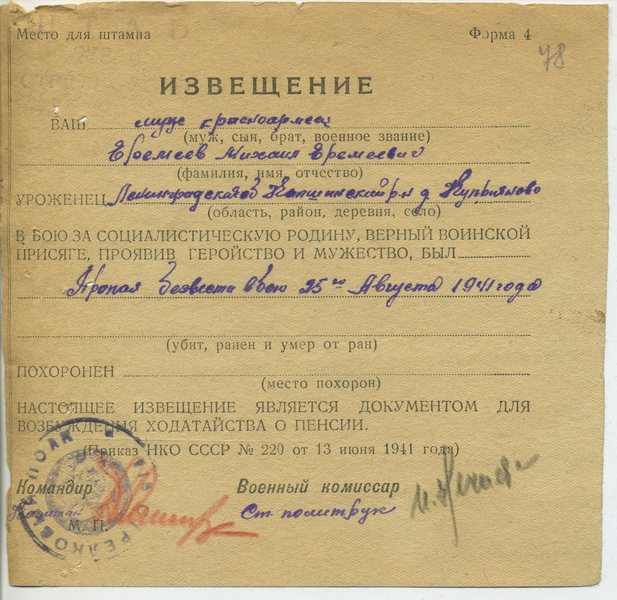 Место для штампа Форма 4
78
ИЗВЕЩЕНИЕ
ВАШ муж красноармеец
(муж, сын, брат, военное звание)
Еремеев Михаил Еремеевич
(фамилия, имя, отчество)
УРОЖЕНЕЦ Ленинградской Капшинский р-н д. Куприяново
(область, район, деревня, село)
В БОЮ ЗА СОЦИАЛИСТИЧЕСКУЮ РОДИНУ, ВЕРНЫЙ ВОИНСКОЙ
ПРИСЯГЕ, ПРОЯВИВ ГЕРОЙСТВО И МУЖЕСТВО, БЫЛ
Пропал безвести в бою 25го Августа 1941 года
(убит, ранен и умер от ран)
ПОХОРОНЕН
(место похорон)
НАСТОЯЩЕЕ ИЗВЕЩЕНИЕ ЯВЛЯЕТСЯ ДОКУМЕНТОМ ДЛЯ
ВОЗБУЖДЕНИЯ ХОДАТАЙСТВА О ПЕНСИИ.
(Приказ НКО СССР № 220 от 13 июня 1941 года)
Командир Военный комиссар
капитан Ст политрук
М. П.